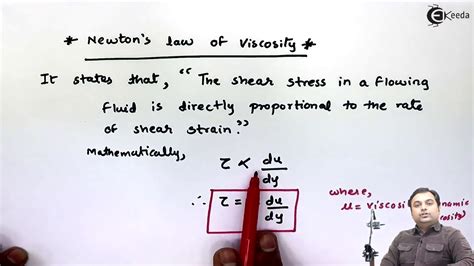 Ekeeda
* Newton's law of Viscosity *
It states that, "The shear stress in a flowing
fluid is directly proportional to the rate
of shear strain."
Mathematically,
τ ∝ du/dy
∴ τ = du/dy
where,
μ = viscosi namic
cosity)